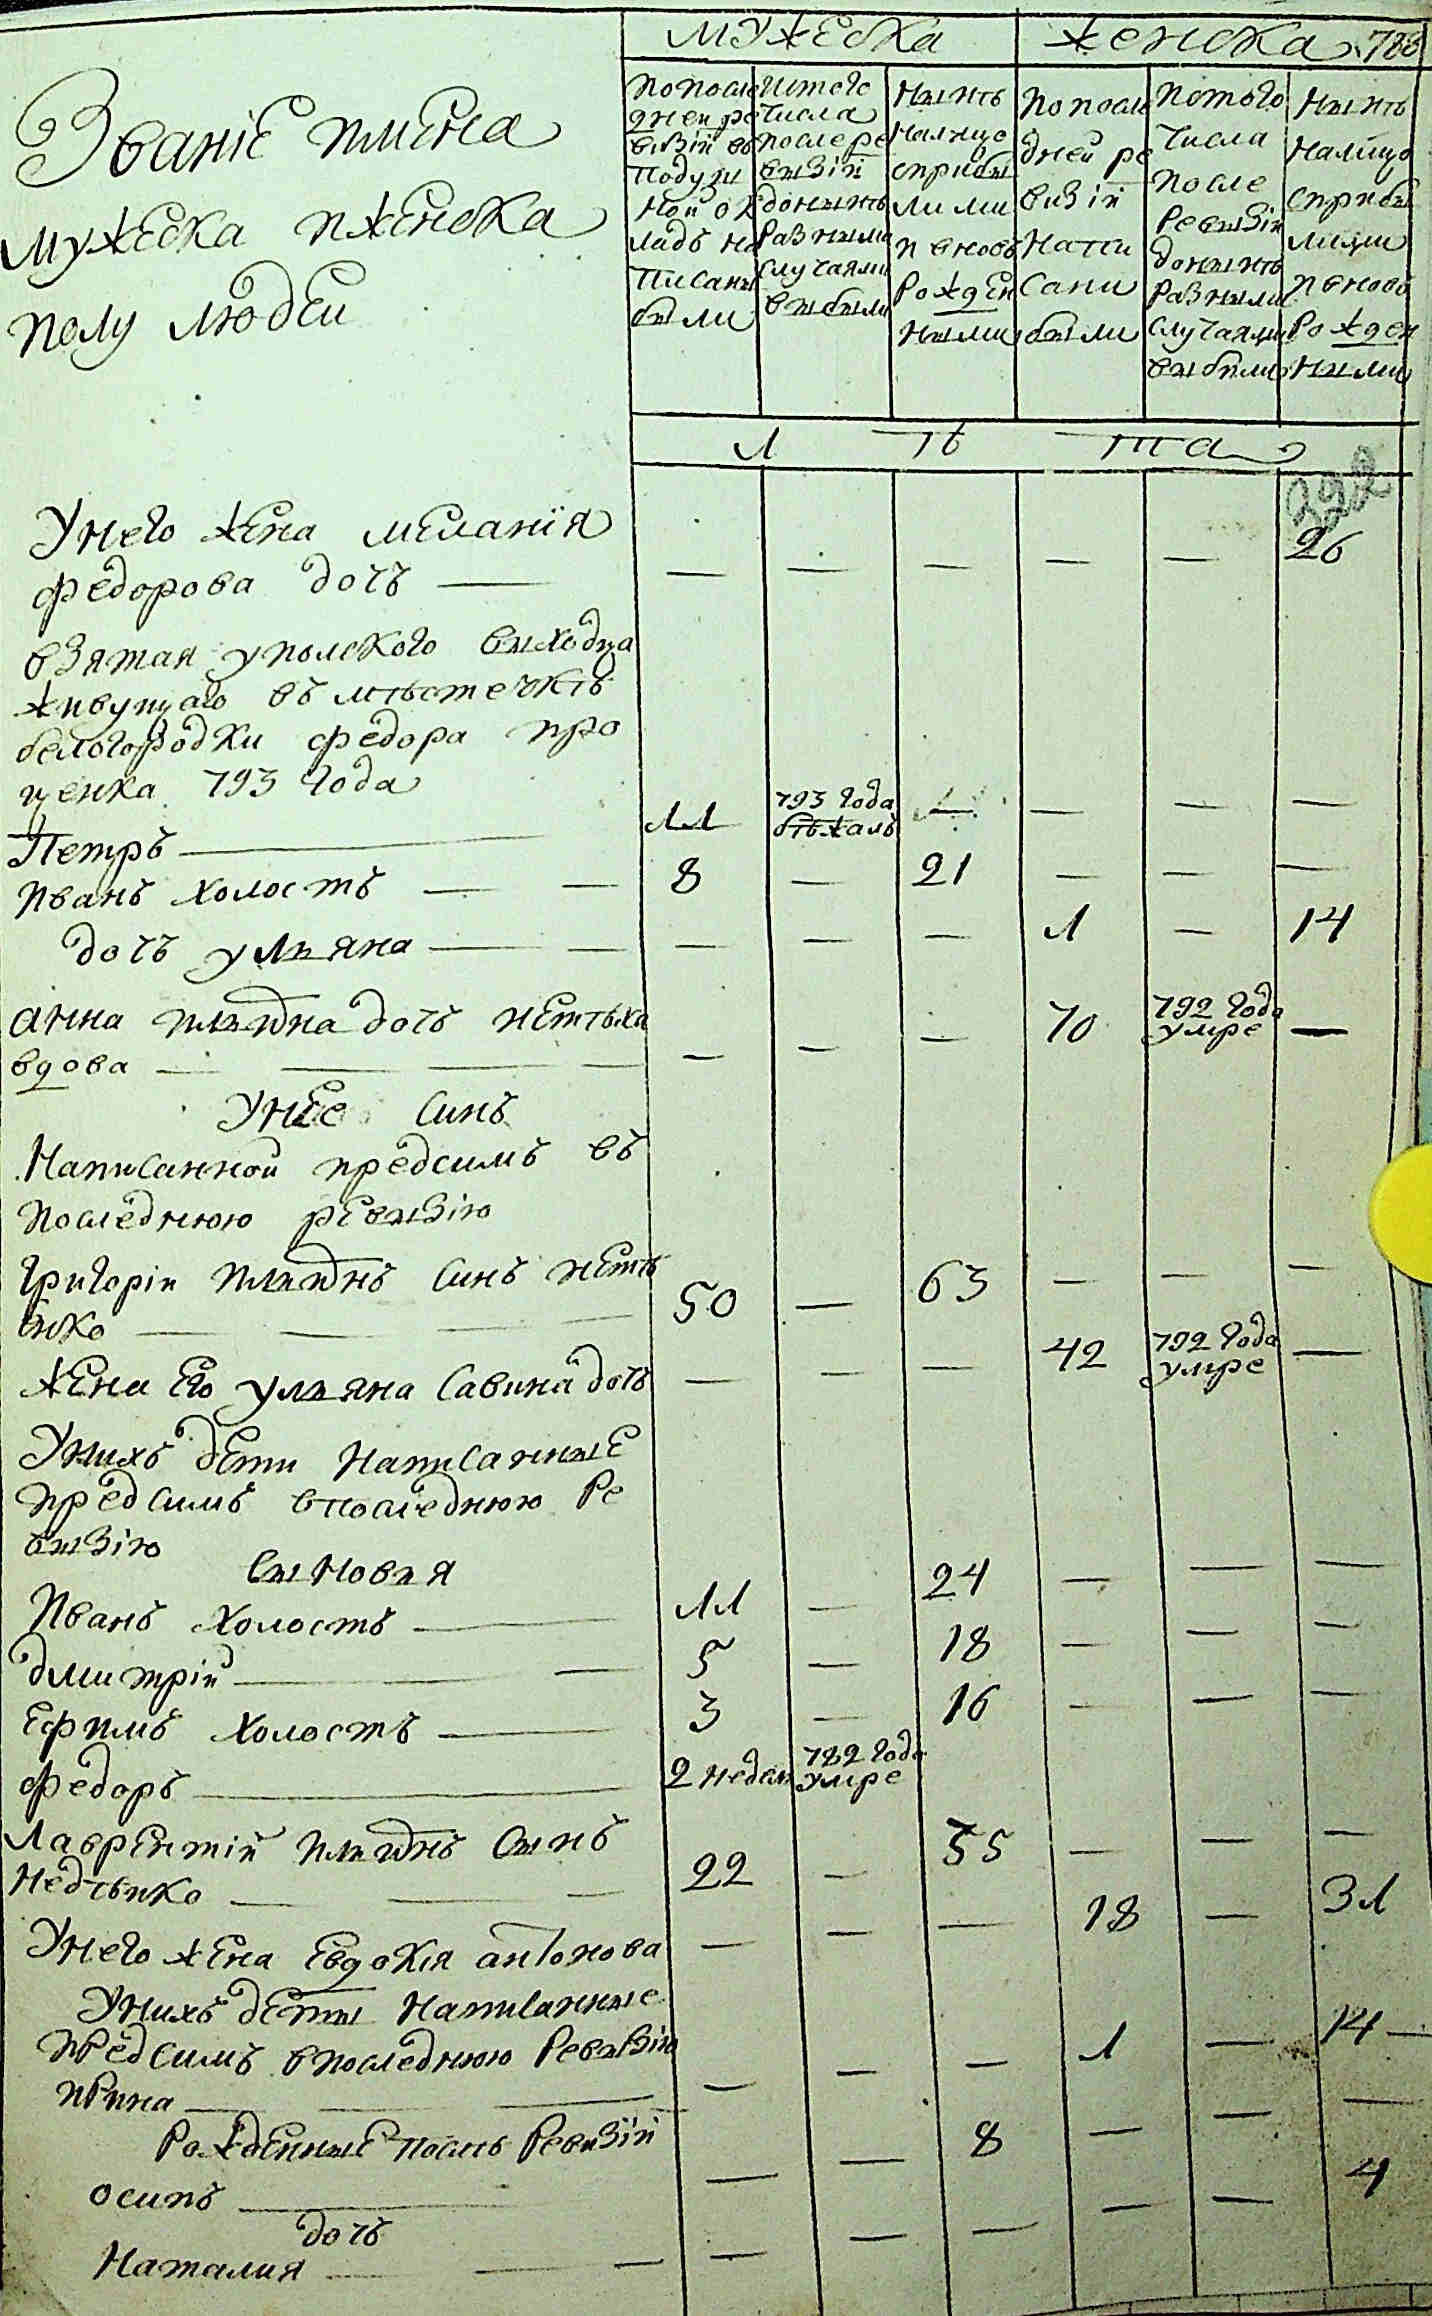 мужеска
женска
Званіе имена
мужеска иженска
полу людеи
Попосле
дней ре
визіи въ
Подуш
ной ок
ладъ на
писаны
были
Истого
числа
после ре
визіи
донынѣ
Разными
случаями
выбыли
Нынѣ
Налицо
сприбы
лими
и вновь
Рожден
ными
Попосле
дней ре
визіи
Напи
саны
были
Истого
числа
После
Ревизіи
донынѣ
Разными
случаями
выбыли
Нынѣ
Налицо
сприбы
лими
и вновь
Рожден
ными
Л ѣ та
392
Унего жена меланія
федорова дочь — — — — — — 26
взятая уполского выходца
живущаго въ мѣстечкѣ
белогородки федора про
ценка 793 года
Петръ — 11 793 года бѣжалъ — — — —
Иванъ холостъ — — 8 — 21 — — —
дочь улияна — — — — — 1 — 14
анна дочь
вдова — — — — 70 792 года умре —
Унее синъ
Написанной предсимъ въ
последнюю ревизію
Григоріи синъ
50 — 63 — — —
жена его улияна савина дочь — — — 42 792 года умре —
Унихъ дети Написанные
предсимъ впоследнюю Ре
визію
Сыновья
Иванъ холостъ — 11 — 24 — — —
дмитріи — 5 — 18 — — —
Ефимъ холостъ — 3 — 16 — — —
федоръ — 2 недел 782 года умре
Лаврентіи сынъ
Недѣико — — — 22 — 35 — — —
Унего жена Евдокія антонова — — — 18 — 31
Унихъ деты Написанные
предсимъ впоследнюю Ревизію
ирина — — — — — — 1 — 14 —
Рожденные посль Ревизіи
осипъ — — — 8 — — —
дочь
Наталия — — — — — — — — 4